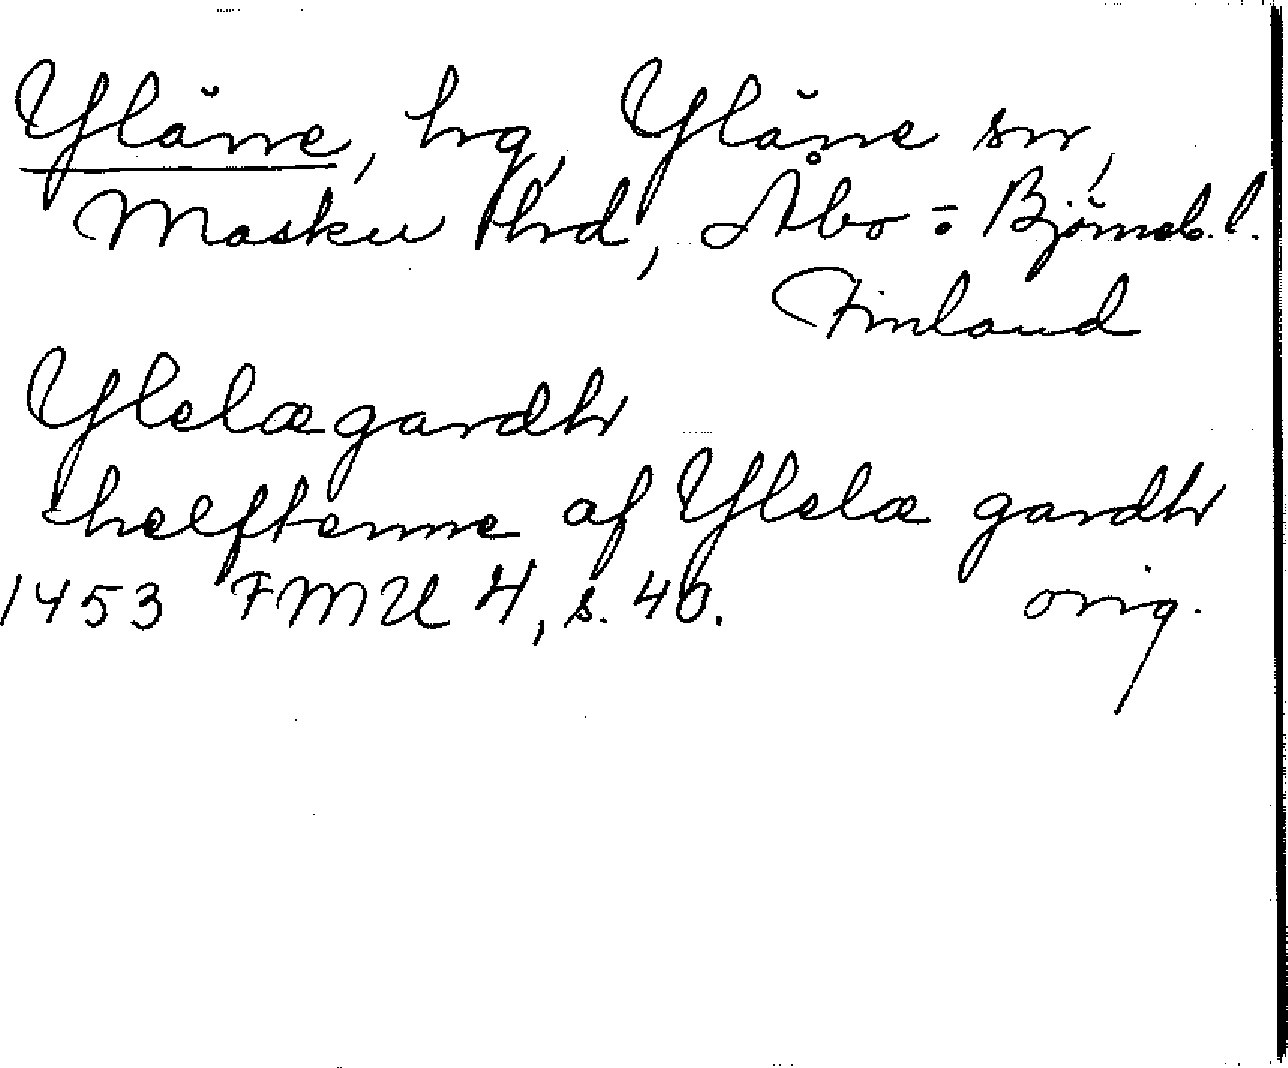 Yläne, hg, Yläne sn,
Masku hrd, Åbo-Björneb. l.
Finland
Ylelægardh
helftenne af Ylelæ gardh
1453 FMU 4, s. 40. orig.